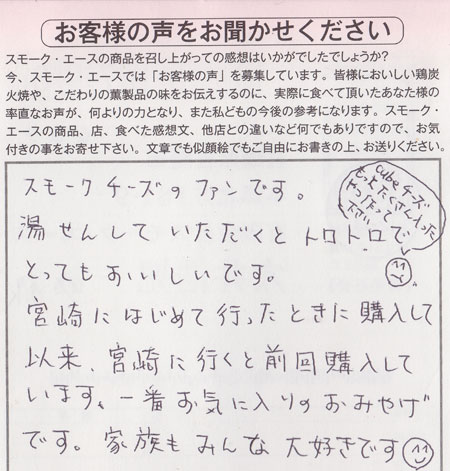 お客様の声をお聞かせください
スモーク・エースの商品を召し上がっての感想はいかがでしたでしょうか?
今、スモーク・エースでは「お客様の声」を募集しています。皆様においしい鶏炭
火焼や、こだわりの薫製品の味をお伝えするのに、実際に食べて頂いたあなた様の
率直なお声が、何よりの力となり、また私どもの今後の参考になります。スモーク・
エースの商品、店、食べた感想文、他店との違いなど何でもありですので、お気
付きの事をお寄せ下さい。文章でも似顔絵でもご自由にお書きの上、お送りください。
スモークチーズのファンです。
湯せんしていただくとトロトロで
とってもおいしいです。
宮崎にはじめて行ったときに購入して
以来、宮崎に行くと前回購入して
います。一番お気に入りのおみやげ
です。家族もみんな大好きです
cubeチーズ
もっとたくさん入った
下さい